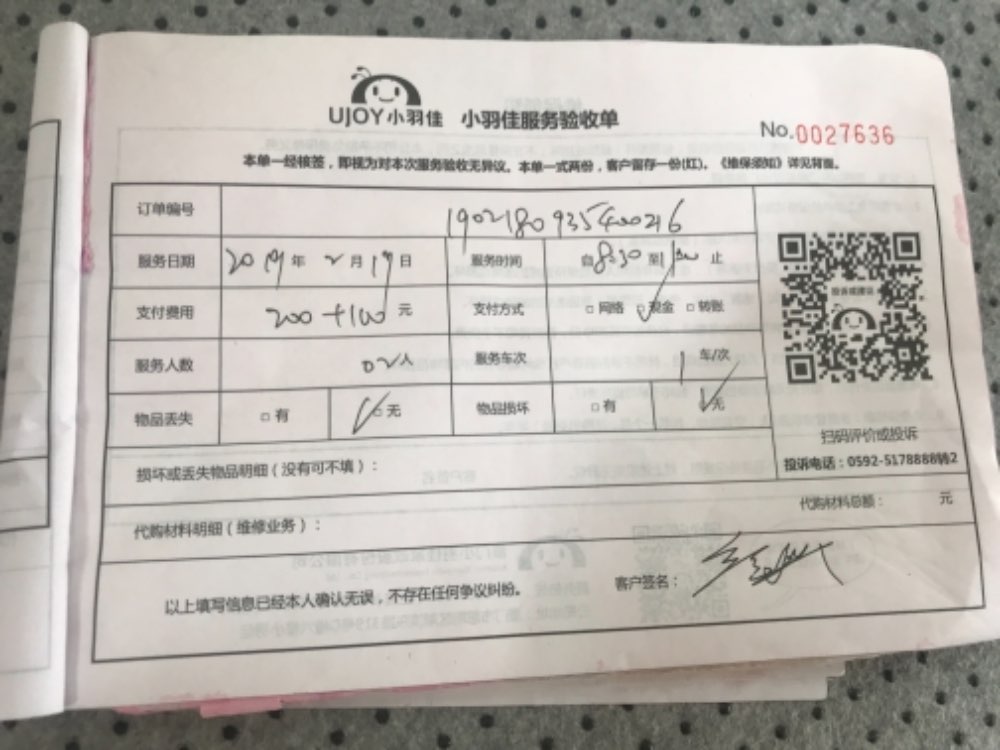 UJOY小羽佳 小羽佳服务验收单
No.0027636
本单一经核签，即视为对本次服务验收无异议。本单一式两份，客户留存一份(红)。《维保须知》详见背面。
订单编号 190218093540026
服务日期 2019年2月19日 服务时间 自8:30至 止
支付费用 200+100元 支付方式 □网络 □现金 □转账
服务人数 02人 服务车次 1车/次
物品丢失 □有 □无 物品损坏 □有 □无
投诉或建议
扫码评价或投诉
投诉电话：0592-5178888转2
损坏或丢失物品明细（没有可不填）：
代购材料明细（维修业务）： 代购材料总额： 元
以上填写信息已经本人确认无误，不存在任何争议纠纷。 客户签名：